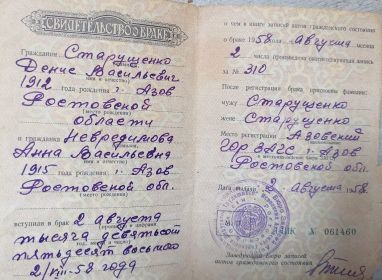 СВИДЕТЕЛЬСТВО О БРАКЕ
Гражданин Старущенко
Денис Васильевич
(имя и отчество)
1912 года рождения г. Азов
Ростовской
(место рождения)
области
и гражданка Невредимова
Анна Васильевна
(имя и отчество)
1915 года рождения г. Азов
Ростовской обл.
(место рождения)
вступили в брак 2 августа
тысяча девятьсот
пятьдесят восьмого
2/VIII-58 года
о чем в книге записей актов гражданского состояния
о браке 1958 года августа месяца
2 числа произведена соответствующая запись
за № 310
После регистрации брака присвоены фамилии:
мужу Старущенко
жене Старущенко
Место регистрации Азовский
гор ЗАГС г. Азов
Ростовской обл.
Дата выдачи 2 августа 1958
№ 061460
Заведующий Бюро записей
актов гражданского состояния